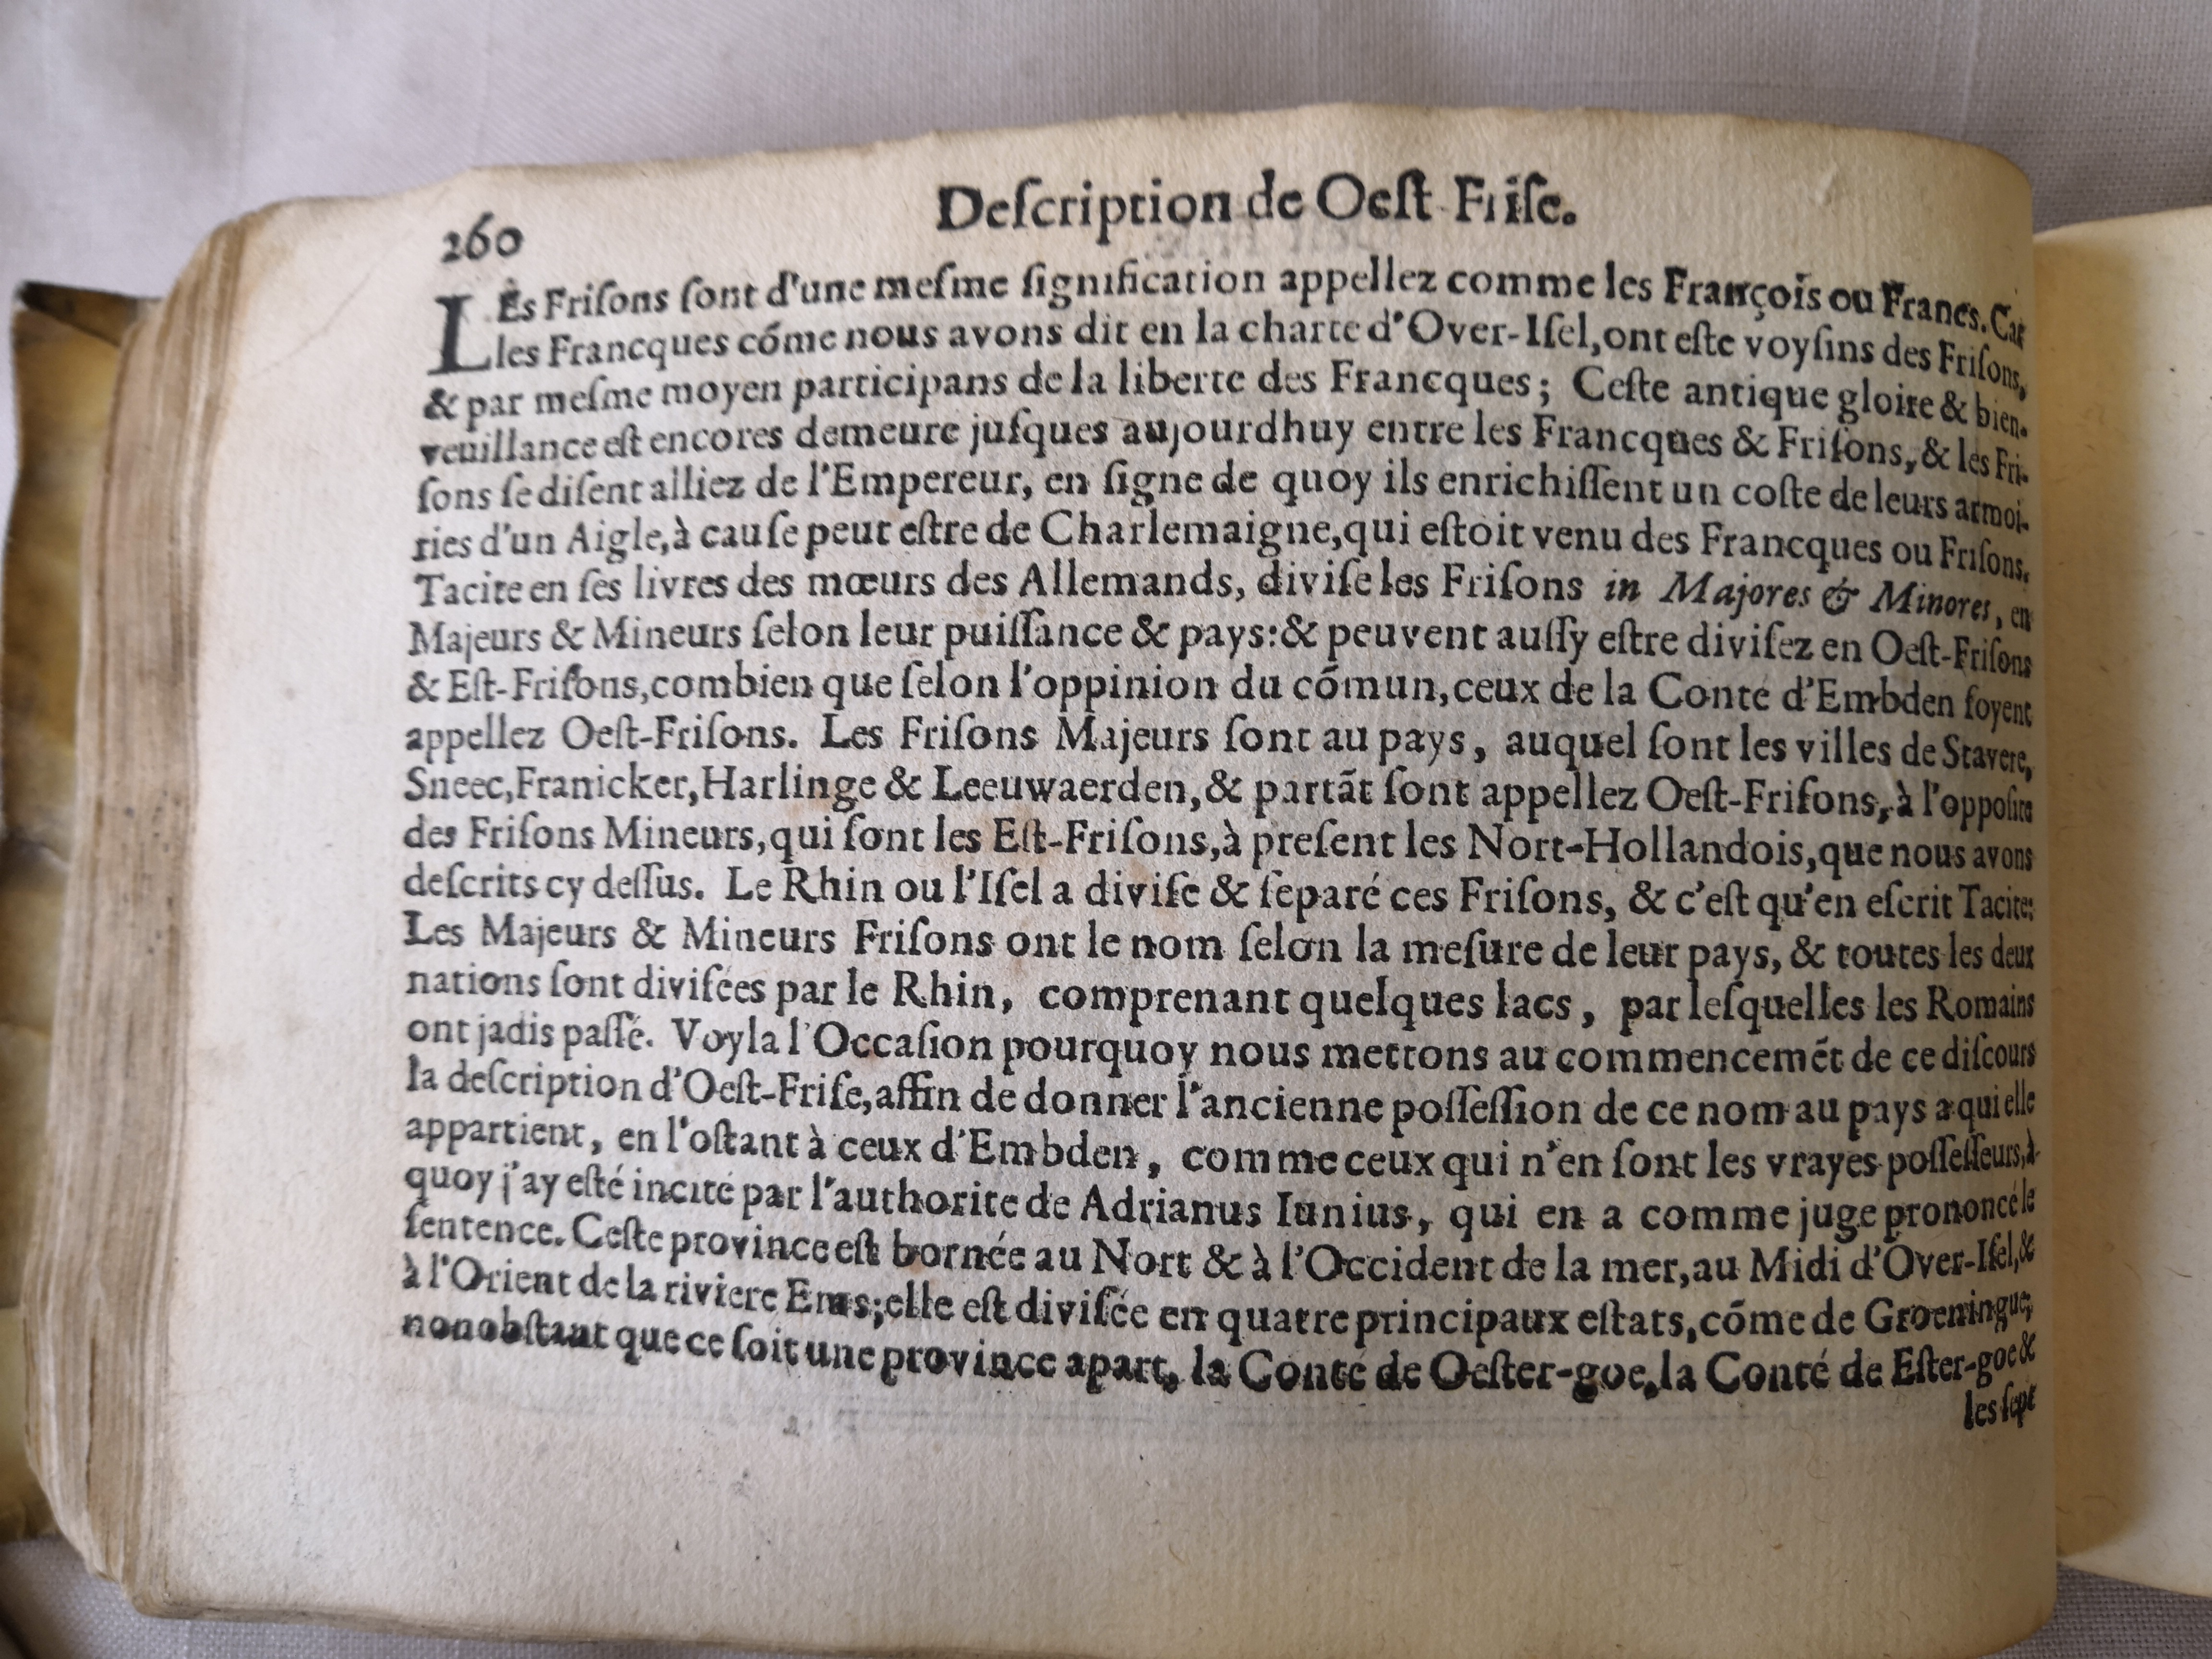 260
Deſcription de Oeſt Friſe.
LEs Friſons ſont d'une meſme ſignification appellez comme les François ou Francs. Car
les Francques cóme nous avons dit en la charte d'Over-Iſel, ont eſte voyſins des Friſons,
& par meſme moyen participans de la liberte des Francques; Ceſte antique gloire & bien-
veuillance eſt encores demeure juſques aujourdhuy entre les Francques & Friſons, & les Fri-
ſons ſe diſent alliez de l'Empereur, en ſigne de quoy ils enrichiſſent un coſte de leurs armoi-
ries d'un Aigle, à cauſe peut eſtre de Charlemaigne, qui eſtoit venu des Francques ou Friſons.
Tacite en ſes livres des mœurs des Allemands, diviſe les Friſons in Majores & Minores, en
Majeurs & Mineurs ſelon leur puiſſance & pays: & peuvent auſſy eſtre diviſez en Oeſt-Friſons
& Eſt-Friſons, combien que ſelon l'oppinion du cómun, ceux de la Conté d'Embden ſoyent
appellez Oeſt-Friſons. Les Friſons Majeurs ſont au pays, auquel ſont les villes de Stavere,
Sneec, Franicker, Harlinge & Leeuwaerden, & partãt ſont appellez Oeſt-Friſons, à l'oppoſite
des Friſons Mineurs, qui ſont les Eſt-Friſons, à preſent les Nort-Hollandois, que nous avons
deſcrits cy deſſus. Le Rhin ou l'Iſel a diviſe & ſeparé ces Friſons, & c'eſt qu'en eſcrit Tacite:
Les Majeurs & Mineurs Friſons ont le nom ſelon la meſure de leur pays, & toutes les deux
nations ſont diviſées par le Rhin, comprenant quelques lacs, par leſquelles les Romains
ont jadis paſſé. Voyla l'Occaſion pourquoy nous mettons au commencemét de ce diſcours
la deſcription d'Oeſt-Friſe, affin de donner l'ancienne poſſeſſion de ce nom au pays a qui elle
appartient, en l'oſtant à ceux d'Embden, comme ceux qui n'en ſont les vrayes poſſeſſeurs, à
quoy j'ay eſté incité par l'authorite de Adrianus Iunius, qui en a comme juge prononcé le
ſentence. Ceſte province eſt bornée au Nort & à l'Occident de la mer, au Midi d'Over-Iſel, &
à l'Orient de la riviere Ems; elle eſt diviſée en quatre principaux eſtats, cõme de Groeningue,
nonobſtant que ce ſoit une province apart, la Conté de Oeſter-goe, la Conté de Eſter-goe &
les ſept